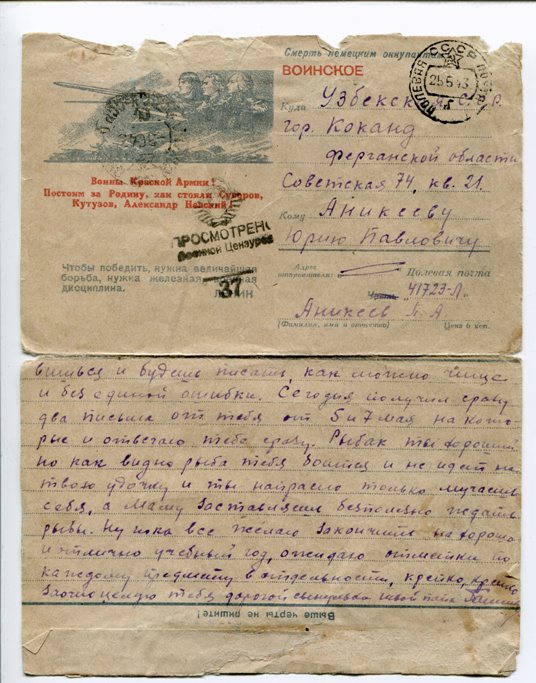 Смерть немецким оккупантам
ВОИНСКОЕ
ПОЛЕВАЯ ПОЧТА СССР
25 5 43
Куда Узбекская С.С.Р.
гор. Коканд
Ферганской области
Советская 74, кв. 21.
Кому Аникееву
Юрию Павловичу
Воины Красной Армии!
Постоим за Родину, как стояли Суворов,
Кутузов, Александр Невский!
ПРОСМОТРЕНО
Военной Цензурой
37
Чтобы победить, нужна величайшая
борьба, нужна железная, военная
дисциплина.
ЛЕНИН
Адрес
отправителя: Полевая почта
Часть 41723-Л.
Аникеев П. А.
(Фамилия, имя и отчество) Цена 6 коп.
и будешь писать, как можно чище
и без единой ошибки. Сегодня получил сразу
два письма от тебя от 5 и 7 мая на кото-
рые и отвечаю тебе сразу. Рыбак ты хороший
но как видно рыба тебя боится и не идет на
твою удочку и ты напрасно только мучаешь
себя, а маму заставляешь бесполезно ждать
рыбы. Ну пока все желаю закончить на хорошо
и отлично учебный год, ожидаю отметки по
каждому предмету в отдельности, крепко, крепко
Заочно целую тебя дорогой твой папа
Выше черты не пишите!